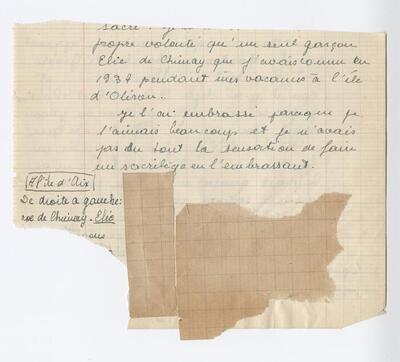 sacré. Je
propre volonté qu'un seul garçon
Elie de Chimay que j'avais connu en
1934 pendant mes vacances à l'île
d'Oléron..
Je l'ai embrassé parce que je
l'aimais beaucoup et je n'avais
pas du tout la sensation de faire
un sacrilège en l'embrassant.
A l'île d'Aix
De droite à gauche:
de Chimay. Elie